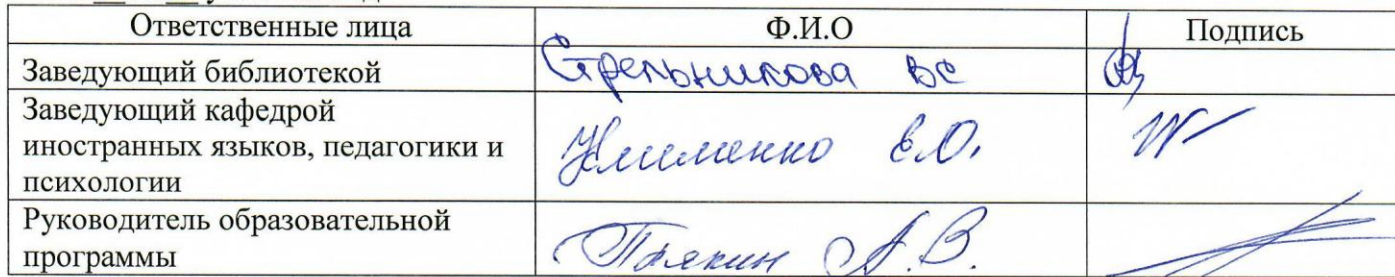 Ответственные лица Ф.И.О Подпись
Заведующий библиотекой Стрельникова ВС
Заведующий кафедрой
иностранных языков, педагогики и Клименко Е.О.
психологии
Руководитель образовательной
программы А.В.